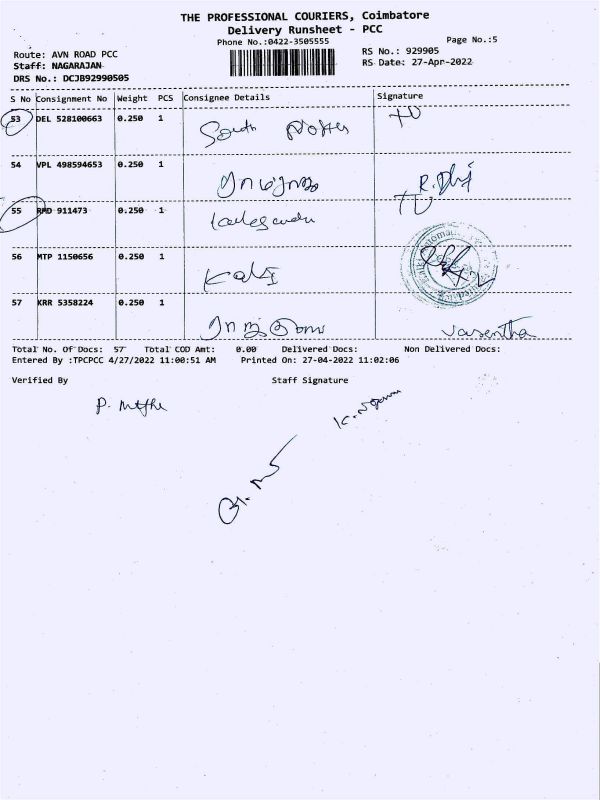 THE PROFESSIONAL COURIERS, Coimbatore
Delivery Runsheet - PCC
Phone No.:0422-3505555
Page No.:5
Route: AVN ROAD PCC
RS No.: 929905
Staff: NAGARAJAN
RS Date: 27-Apr-2022
DRS No.: DCJB92990505
S No Consignment No Weight PCS Consignee Details Signature
53 DEL 528100663 0.250 1 South
54 VPL 498594653 0.250 1
55 RMD 911473 0.250 1
56 MTP 1150656 0.250 1
57 KRR 5358224 0.250 1 Vasentha
Total No. Of Docs: 57 Total COD Amt: 0.00 Delivered Docs: Non Delivered Docs:
Entered By :TPCPCC 4/27/2022 11:00:51 AM Printed On: 27-04-2022 11:02:06
Verified By Staff Signature